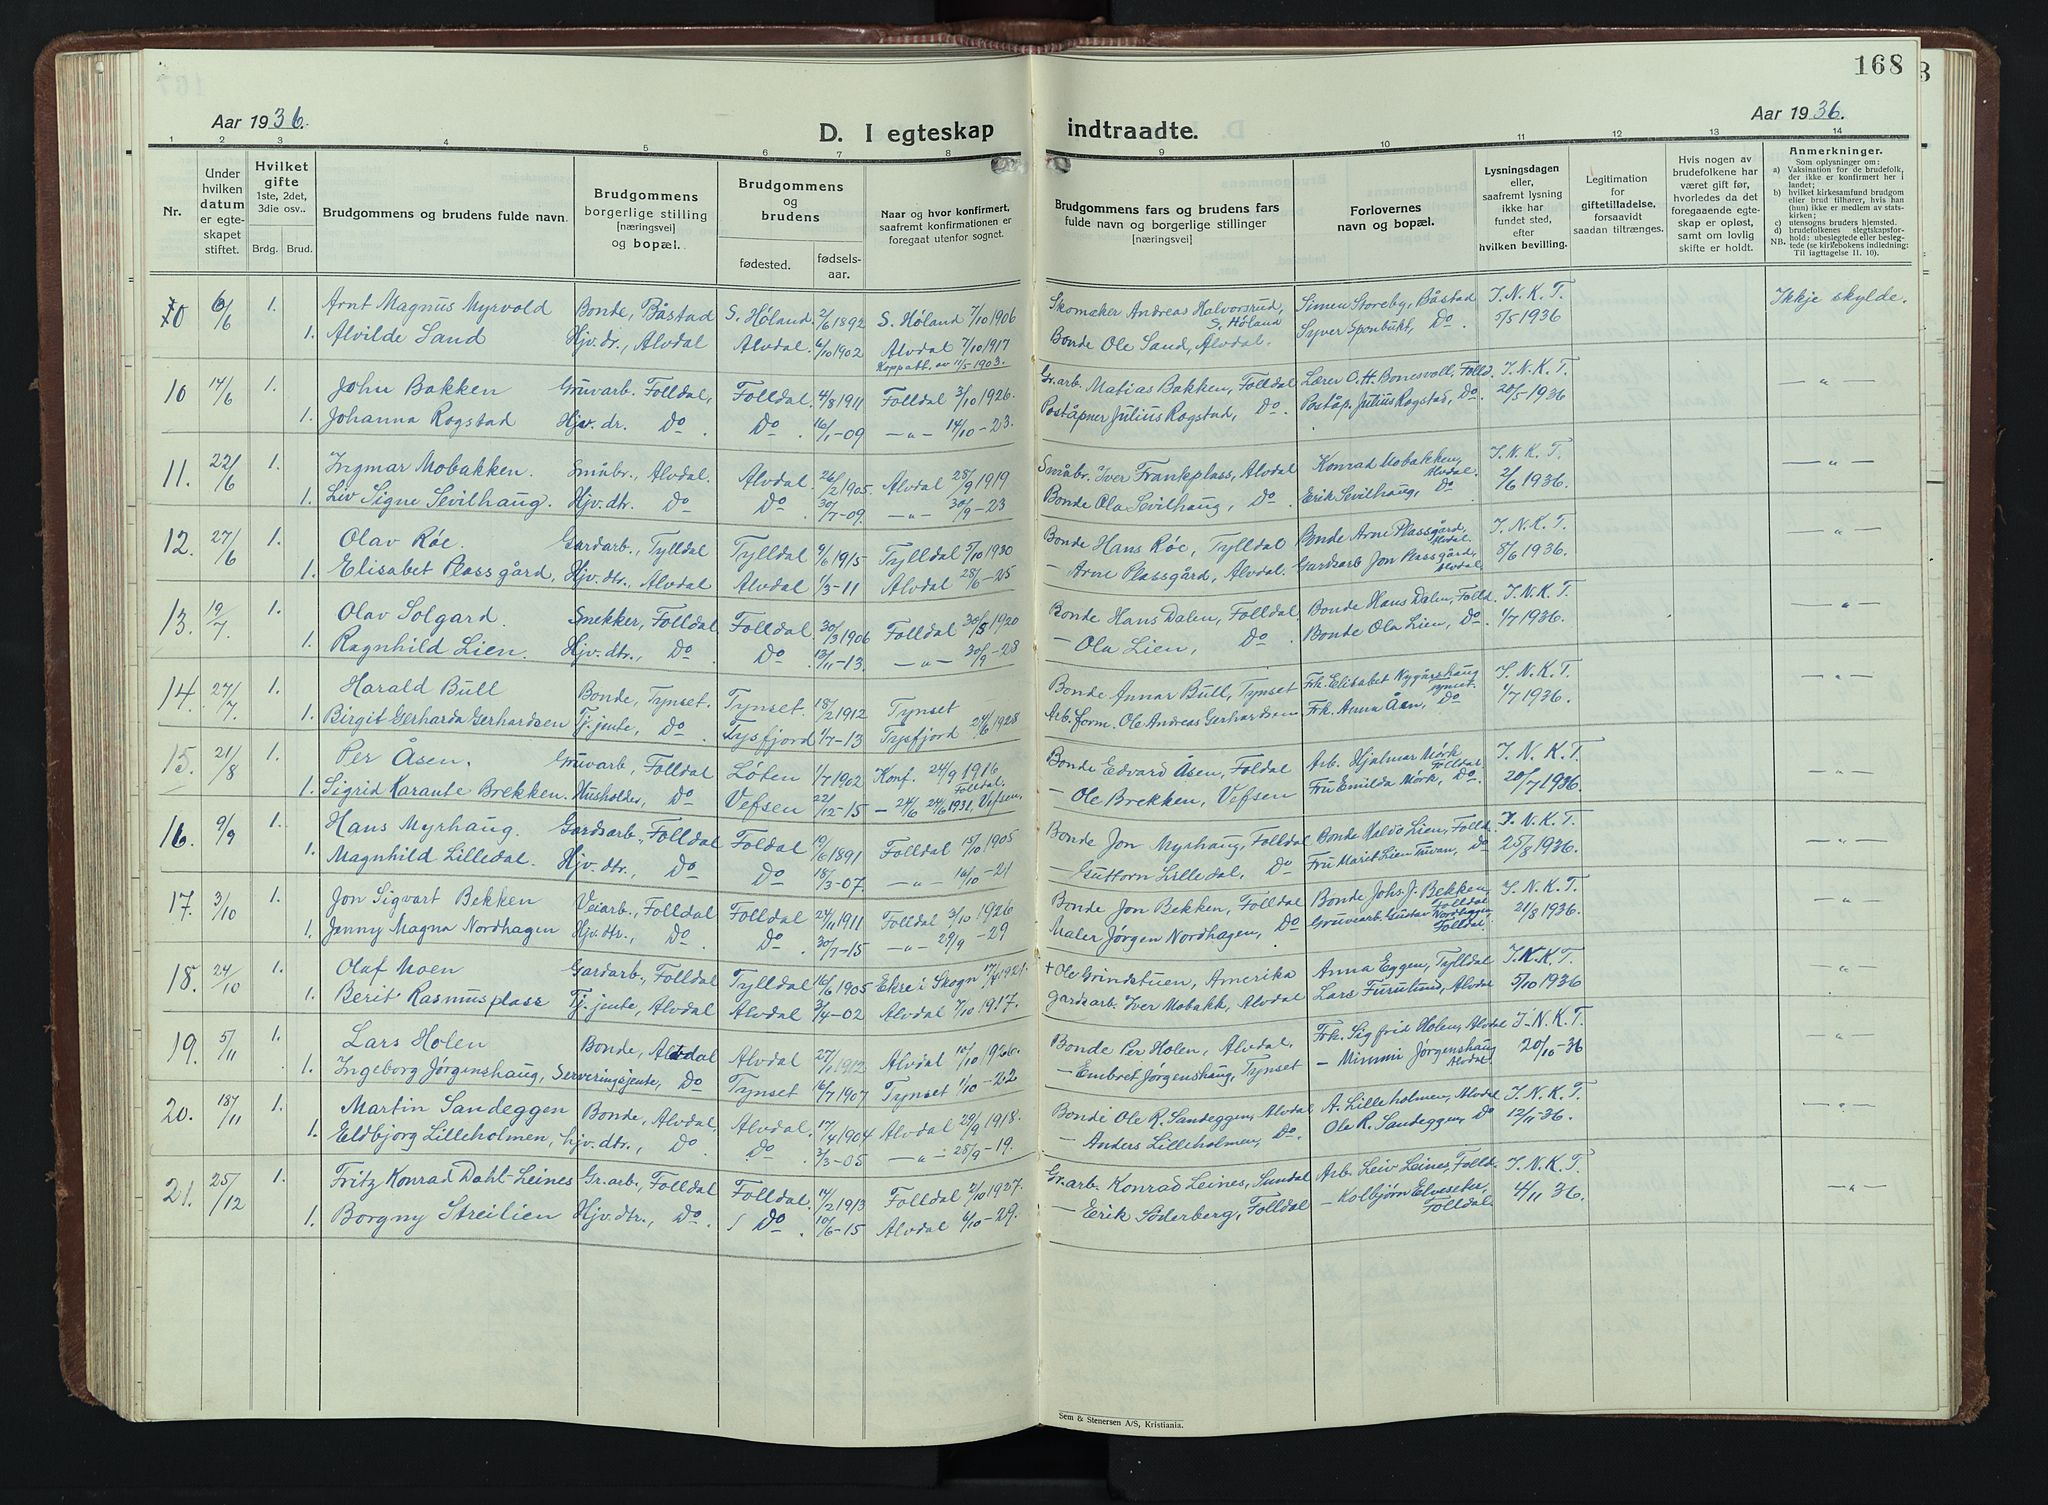 168
Aar 1936.
D. I egteskap indtraadte.
Aar 1936.
1 2 3 4 5 6 7 8 9 10 11 12 13 14
Nr.
Under hvilken datum er egteskapet stiftet.
Hvilket gifte 1ste, 2det, 3die osv..
Brdg. Brud.
Brudgommens og brudens fulde navn.
Brudgommens borgerlige stilling [næringsvei] og bopæl.
Brudgommens og brudens
fødested. fødselsaar.
Naar og hvor konfirmert, saafremt konfirmationen er foregaat utenfor sognet.
Brudgommens fars og brudens fars fulde navn og borgerlige stillinger [næringsvei]
Forlovernes navn og bopæl.
Lysningsdagen eller, saafremt lysning ikke har fundet sted, efter hvilken bevilling.
Legitimation for giftetilladelse, forsaavidt saadan tiltrænges.
Hvis nogen av brudefolkene har været gift før, hvorledes da det foregaaende egteskap er opløst, samt om lovlig skifte er holdt.
Anmerkninger.
Som oplysninger om:
a) Vaksination for de brudefolk, der ikke er konfirmert her i landet;
b) hvilket kirkesamfund brudgom eller brud tilhører, hvis han (hun) ikke er medlem av statskirken;
c) utensogns bruders hjemsted.
d) brudefolkenes slegtskapsforhold: ubeslegtede eller beslegtede (se kirkebokens indledning:
NB. Til iagttagelse 11. 10).
6/6 1. Arnt Magnus Myrvold Bonde, Båstad S. Høland 2/6 1892 S. Høland 7/10 1906 Skomaker Andreas Halvorsrud, S. Høland Simen Storeby, Båstad I. N. K. T. Ikkje skylde.
1. Alvilde Sand Hjv. dr., Alvdal Alvdal 6/10 1902 Alvdal 7/10 1917 Bonde Ole Sand, Alvdal. Syver Sponbukt, Do. 5/5 1936
Koppatt. av 11/5 1903.
10 14/6 1. John Bakken Gruvarb. Folldal, Folldal 4/8 1911 Folldal 3/10 1926. Gr. arb. Matias Bakken, Folldal Lærer O. H. Bonesvoll, Folld. I. N. K. T. — " —
1. Johanna Rogstad Hjv. dr. Do. Do. 16/1-09 — " — 14/10-23. Poståpner Julius Rogstad, Do. Poståp. Julius Rogstad, Do. 20/5 1936
11. 22/6 1. Ingmar Mobakken. Småbr., Alvdal. Alvdal 26/2 1905. Alvdal 28/9 1919 Småbr. Iver Frankplass, Alvdal Konrad Mobakken, Alvdal. I. N. K. T. — " —
1. Liv Signe Sevilhaug. Hjv. dtr. Do Do. 30/7-09. — " — 30/9-23 Bonde Ola Sevilhaug, Do. Erik Sevilhaug, Do 2/6 1936.
12. 27/6 1. Olav Røe. Gardarb., Tylldal Tylldal 9/6 1915 Tylldal 5/10 1930 Bonde Hans Røe, Tylldal Bonde Arne Plassgård, Alvdal. I. N. K. T. — " —
1. Elisabet Plassgård, Hjv. dtr., Alvdal Alvdal 1/3-11 Alvdal 28/6-25 — Arne Plassgård, Alvdal. Gardsarb Jon Plassgård, Alvdal 8/6 1936.
13. 19/7. 1. Olav Solgard. Snekker, Folldal Folldal 30/3 1906 Folldal 30/5 1920 Bonde Hans Dalen, Folldal Bonde Hans Dalen, Folld. I. N. K. T. — " —
1. Ragnhild Lien. Hjv. dtr., Do Do. 13/11-13. — " — 30/9-28 — Ola Lien, Do. Bonde Ola Lien, Do. 1/7 1936.
14. 27/7. 1. Harald Bull Bonde, Tynset. Tynset. 18/2 1912 Tynset Bonde Annar Bull, Tynset Frk. Elisabet Nygårdshaug Tynset. I. N. K. T. — " —
1. Birgit Gerharda Gerhardsen Tj. jente, Do Tysfjord 1/7-13 Tysfjord 24/6 1928 Arb. form. Ole Andreas Gerhardsen Frk. Anna Åan, Do 1/7 1936.
15. 21/8 1. Per Åsen. Gruvarb, Folldal Løten 1/7 1902 Konf. 24/9 1916 Folldal. Bonde Edvard Åsen, Foldal Arb. Hjalmar Mørk Folldal I. N. K. T. — " —
1. Sigrid Karante Brekken. Husholder, Do Vefsen 22/12-15 — 24/6 24/6 1931, Vefsen. — Ole Brekken, Vefsen Fru Emilda Mørk, Do. 20/7 1936.
16. 9/9 1. Hans Myrhaug. Gardsarb., Folldal Foldal 19/6 1891 Folldal 15/10 1905 Bonde Jon Myrhaug, Folldal Bonde Haldo Lien, Folld. I. N. K. T. — " —
1. Magnhild Lilledal. Hjv. dtr., Do Do 18/3-07. — " — 16/10-21 — Guttorn Lilledal, Do Fru Marit Lien Trøan, Do 25/8 1936.
17. 3/10 1. Jon Sigvart Bekken Veiarb., Folldal Folldal 24/11 1911 Folldal 3/10 1926 Bonde Jon Bekken, Folldal Bonde Johs. J. Bekken, Folldal I. N. K. T. — " —
1. Jenny Magna Nordhagen Hjv. dtr., Do. Do. 30/7-15. — " — 29/9-29 Maler Jørgen Nordhagen, Do Gruvearb. Gustav Nordhagen Folldal. 21/8 1936.
18. 24/10 1. Olaf Moen Gardarb., Folldal Tylldal 16/6 1905 Ekre i Skogn 1921. + Ole Grindstuen, Amerika Anna Eggen, Tylldal I. N. K. T. — " —
1. Berit Rasmusplass Tj. jente, Alvdal Alvdal 3/4-02 Alvdal 7/10 1917. Gardsarb. Iver Mobakk, Alvdal Lars Furulund, Alvdal 5/10 1936
19. 5/11 1. Lars Holen Bonde, Alvdal Alvdal 27/1 1912 Alvdal 10/10 1926. Bonde Per Holen, Alvdal. Frk. Sigfrid Holen, Alvdal I. N. K. T. — " —
1. Ingeborg Jørgenshaug, Serveringsjente, Do Tynset 16/7 1907 Tynset 1/10-22 — Embret Jørgenshaug, Tynset — Mimmi Jørgenshaug Alvdal. 20/10-36
20. 1. Martin Sandeggen Bonde, Alvdal, Alvdal. 17/4 1904 Alvdal 29/9 1918. Bonde Ole R. Sandeggen, Alvdal A. Lilleholmen, Alvdal I. N. K. T. — " —
1. Eldbjørg Lilleholmen, hjv. dtr., Do Do. 3/3-05 — " — 28/9-19. — Anders Lilleholmen, Do. Ole R. Sandeggen, Do 12/11-36.
21. 25/12 1. Fritz Konrad Dahl-Leines Gr. arb., Folldal Folldal. 17/2 1913 Folldal 2/10 1927. Gr. arb. Konrad Leines, Sundal Arb. Leiv Leines, Folld. I. N. K. T. — " —
1. Borgny Streilien Hjv. dtr., Do. Do. 10/6-15 Alvdal 6/10-29. — Erik Söderberg, Folldal — Kolbjørn Elveseter, Folldal. 4/11 36.
Sem & Stenersen A/S, Kristiania.